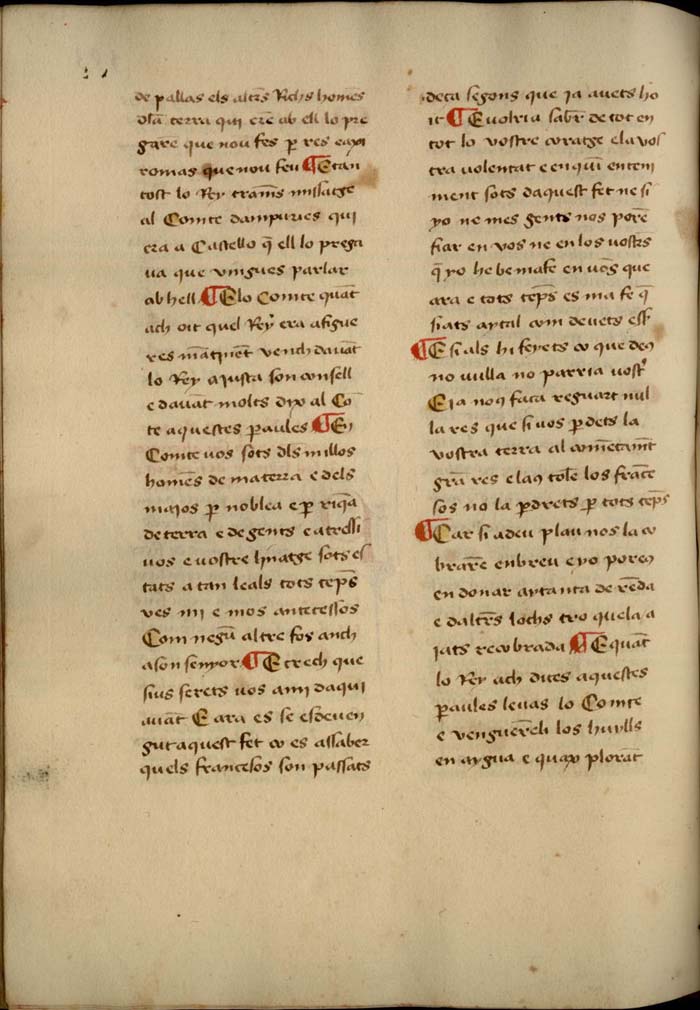 de pallas els altr̄s Richs homēs
dla̅ terra qui erē ab ell lo pre
gare que nou fes ꝑ res eaxi
romas que nou feu ¶ E tan
tost lo Rey trames missatge
al Comte dampuries qui
era a Castello q̄ ell lo prega
ua que vingues parlar
ab hell ¶ E lo Comte quāt
ach oit quel Rey era afigue
res mātinēt vench dauāt
lo Rey aiusta son consell
e dauāt molts dix al Co
te aquestes ꝑaules ¶ En
Comte vos sots dls̄ millos
homēs de ma terra e dels
maios ꝑ noblea e ꝑ riq̄a
de terra e de gents e atressi
vos e vostre linatge sots es
tats a tan leals tots tēps
ves mi e mos antecessos
Com negu̅ altre fos anch
a son senyor ¶ E crech que
sius serets vos ami daqui
auāt E ara es se esdeuen
gut aquest fet co es assaber
quels francesos son passats
deça segons que ia auets ho
it ¶ E uolria sabr̄ de tot en
tot lo vostre coratge e la vos
tra volentat e en qui̅ enteni
ment sots daquest fet ne si
yo ne mes gents nos porē
fiar en vos ne en los vostr̄s
q̄ yo he be ma fe en vos que
ara e tots tēps es ma fe q̄
siats aytal com deuets esser
¶ E si als hi feyets co que deus
no vulla no parria vostr̄
E ia nous faca reguart nul
la res que si vos ꝑdets la
vostra terra al comēcamēt
grā res e laus tolē los france
sos no la ꝑdrets ꝑ tots tēps
¶ Car si a deu plau nos la co
brarē en breu e yo poreus
en donar aytanta de rēda
e daltr̄s lochs tro que la a
iats recobrada ¶ E quāt
lo Rey ach dites aquestes
ꝑaules leuas lo Comte
e venguerēli los huylls
en aygua e quax plorāt